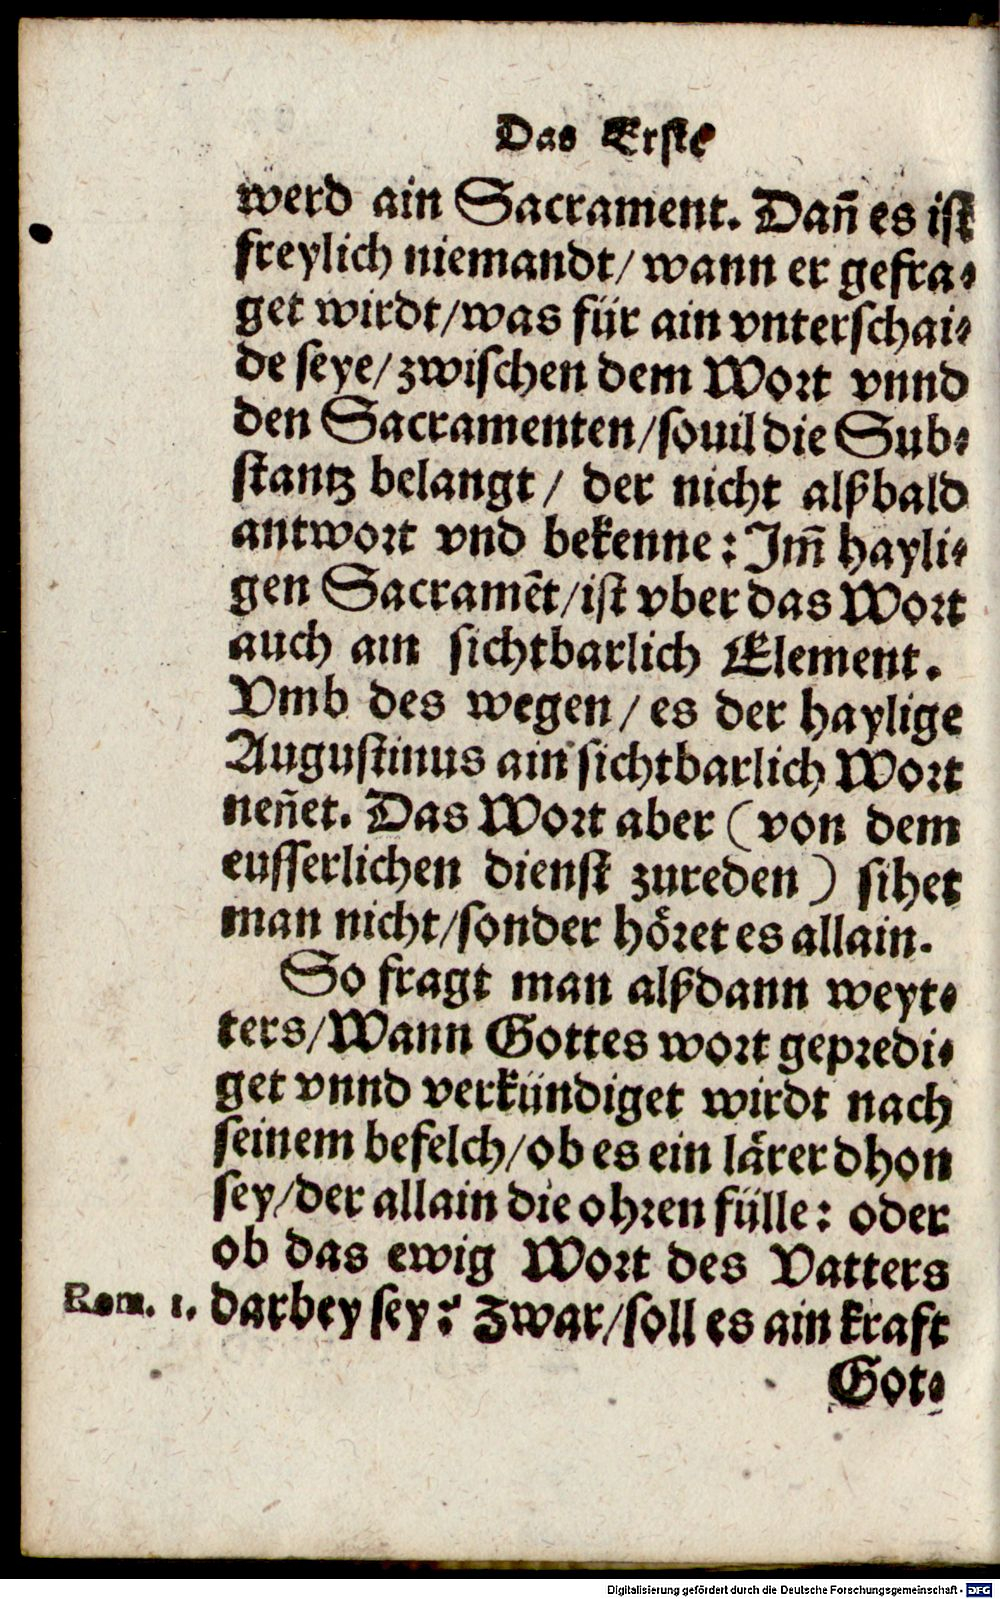 Das Erste
werd ain Sacrament. Dañ es ist
freylich niemandt/ wann er gefra⸗
get wirdt/was für ain vnterschai⸗
de seye/zwischen dem Wort vnnd
den Sacramenten/souil die Sub⸗
stantz belangt/ der nicht alßbald
antwort vnd bekenne: Jm̃ hayli⸗
gen Sacramẽt/ist vber das Wort
auch ain sichtbarlich Element.
Vmb des wegen/ es der haylige
Augustinus ain sichtbarlich Wort
neñet. Das Wort aber (von dem
eusserlichen dienst zureden) sihet
man nicht/sonder hoͤret es allain.
So fragt man alßdann weyt⸗
ters/Wann Gottes wort gepredi⸗
get vnnd verkündiget wirdt nach
seinem befelch/ob es ein laͤrer dhon
sey/der allain die ohren fülle: oder
ob das ewig Wort des Vatters
Rom. 1. darbey sey? Zwar/soll es ain kraft
Got⸗
Digitalisierung gefördert durch die Deutsche Forschungsgemeinschaft - DFG